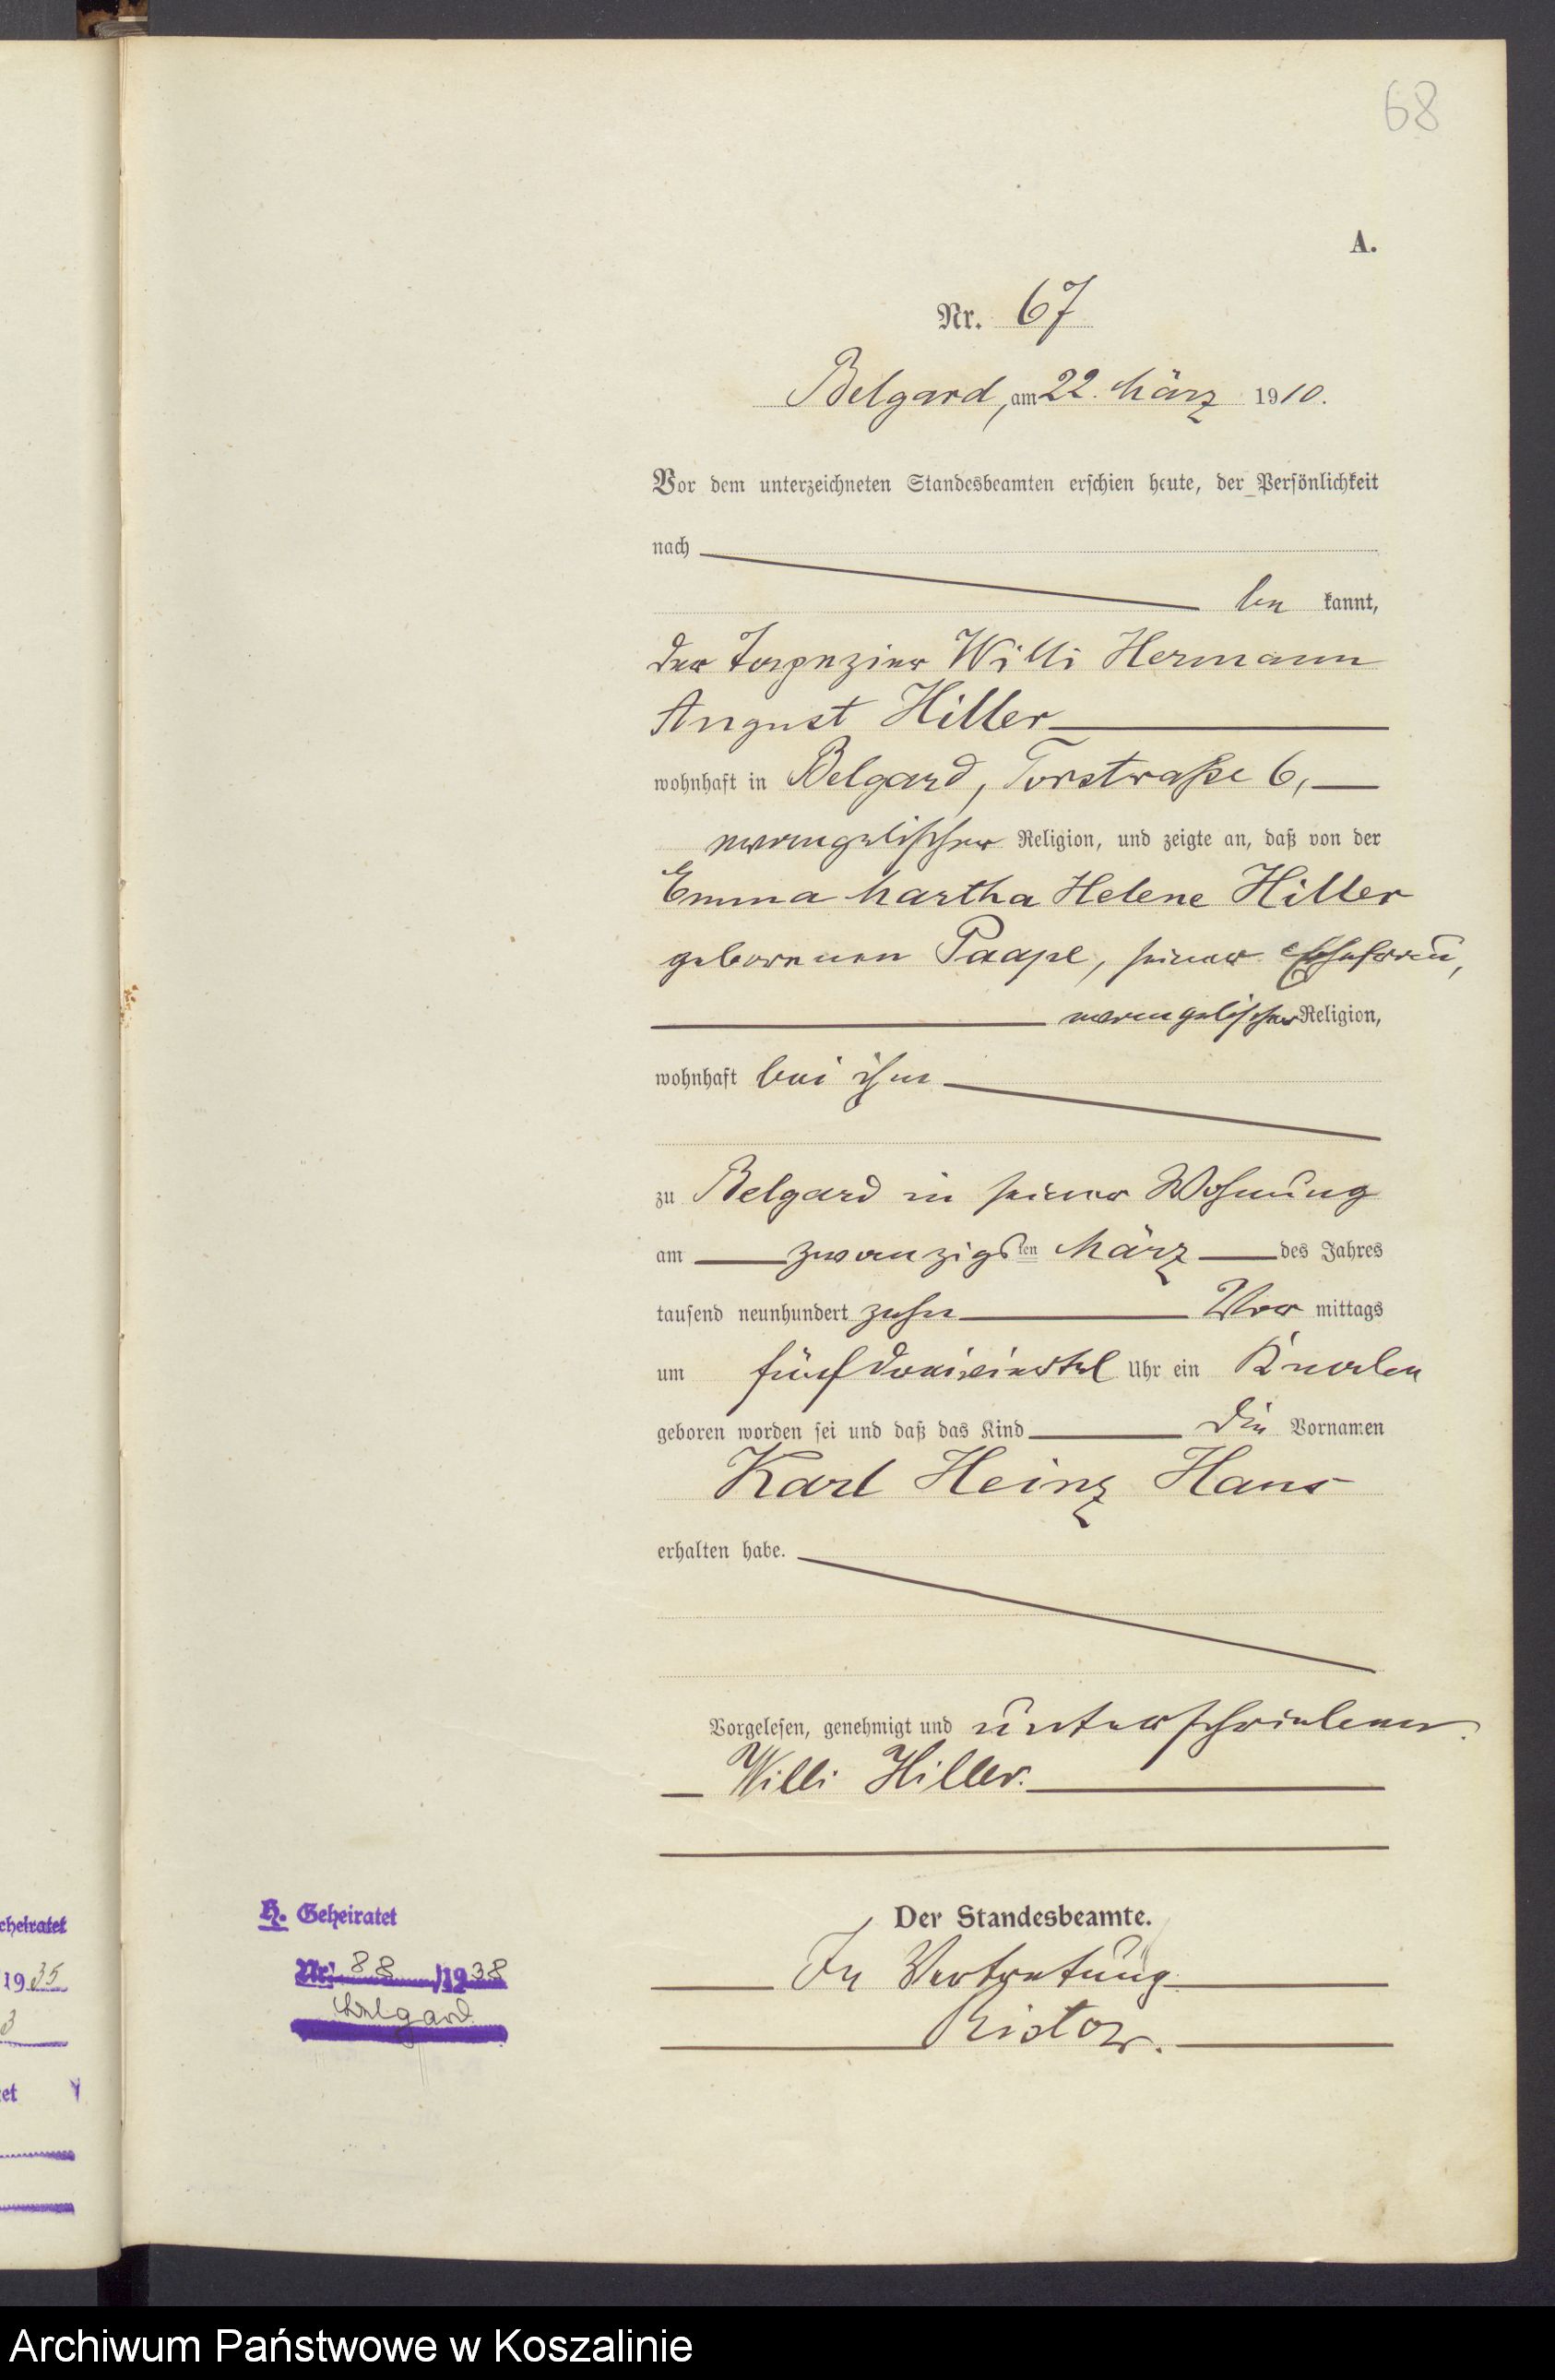 68
A.
Nr. 67
Belgard, am 22. März 1910.
Vor dem unterzeichneten Standesbeamten erschien heute, der Persönlichkeit
nach
be kannt,
der Tapezier Willi Hermann
August Hiller
wohnhaft in Belgard, Torstraße 6,
evangelischer Religion, und zeigte an, daß von der
Emma Martha Helene Hiller
geborenen Paape, seiner Ehefrau,
evangelischer Religion,
wohnhaft bei ihm
zu Belgard in seiner Wohnung
am zwanzigsten März des Jahres
tausend neunhundert zehn Vor mittags
um fünf dreiviertel Uhr ein Knabe
geboren worden sei und daß das Kind die Vornamen
Karl Heinz Hans
erhalten habe.
Vorgelesen, genehmigt und unterschrieben.
Willi Hiller.
Der Standesbeamte.
In Vertretung
Ristow.
H. Geheiratet
Nr. 88 /1938
Belgard
1935
3
et
Archiwum Państwowe w Koszalinie